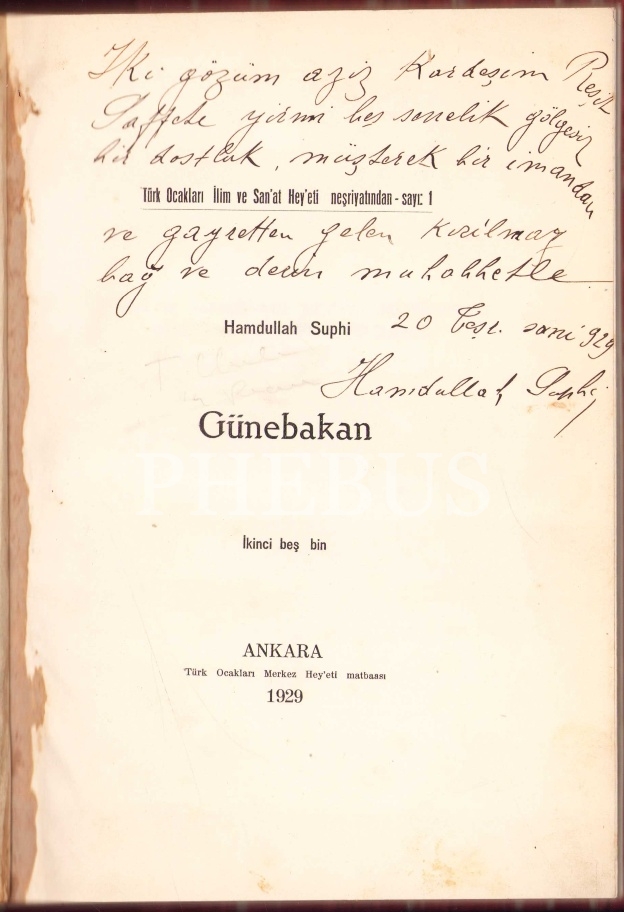 İki gözüm aziz Kardeşim Reşit
Saffete yirmi beş senelik gölgesiz
bir dostluk, müşterek bir imandan
Türk Ocakları İlim ve San'at Hey'eti neşriyatından - sayı: 1
ve gayretten gelen Kırılmaz
bağ ve derin muhabbetle
Hamdullah Suphi
20 Teşr. sani 929
Hamdullah Suphi
Günebakan
PHEBUS
İkinci beş bin
ANKARA
Türk Ocakları Merkez Hey'eti matbaası
1929